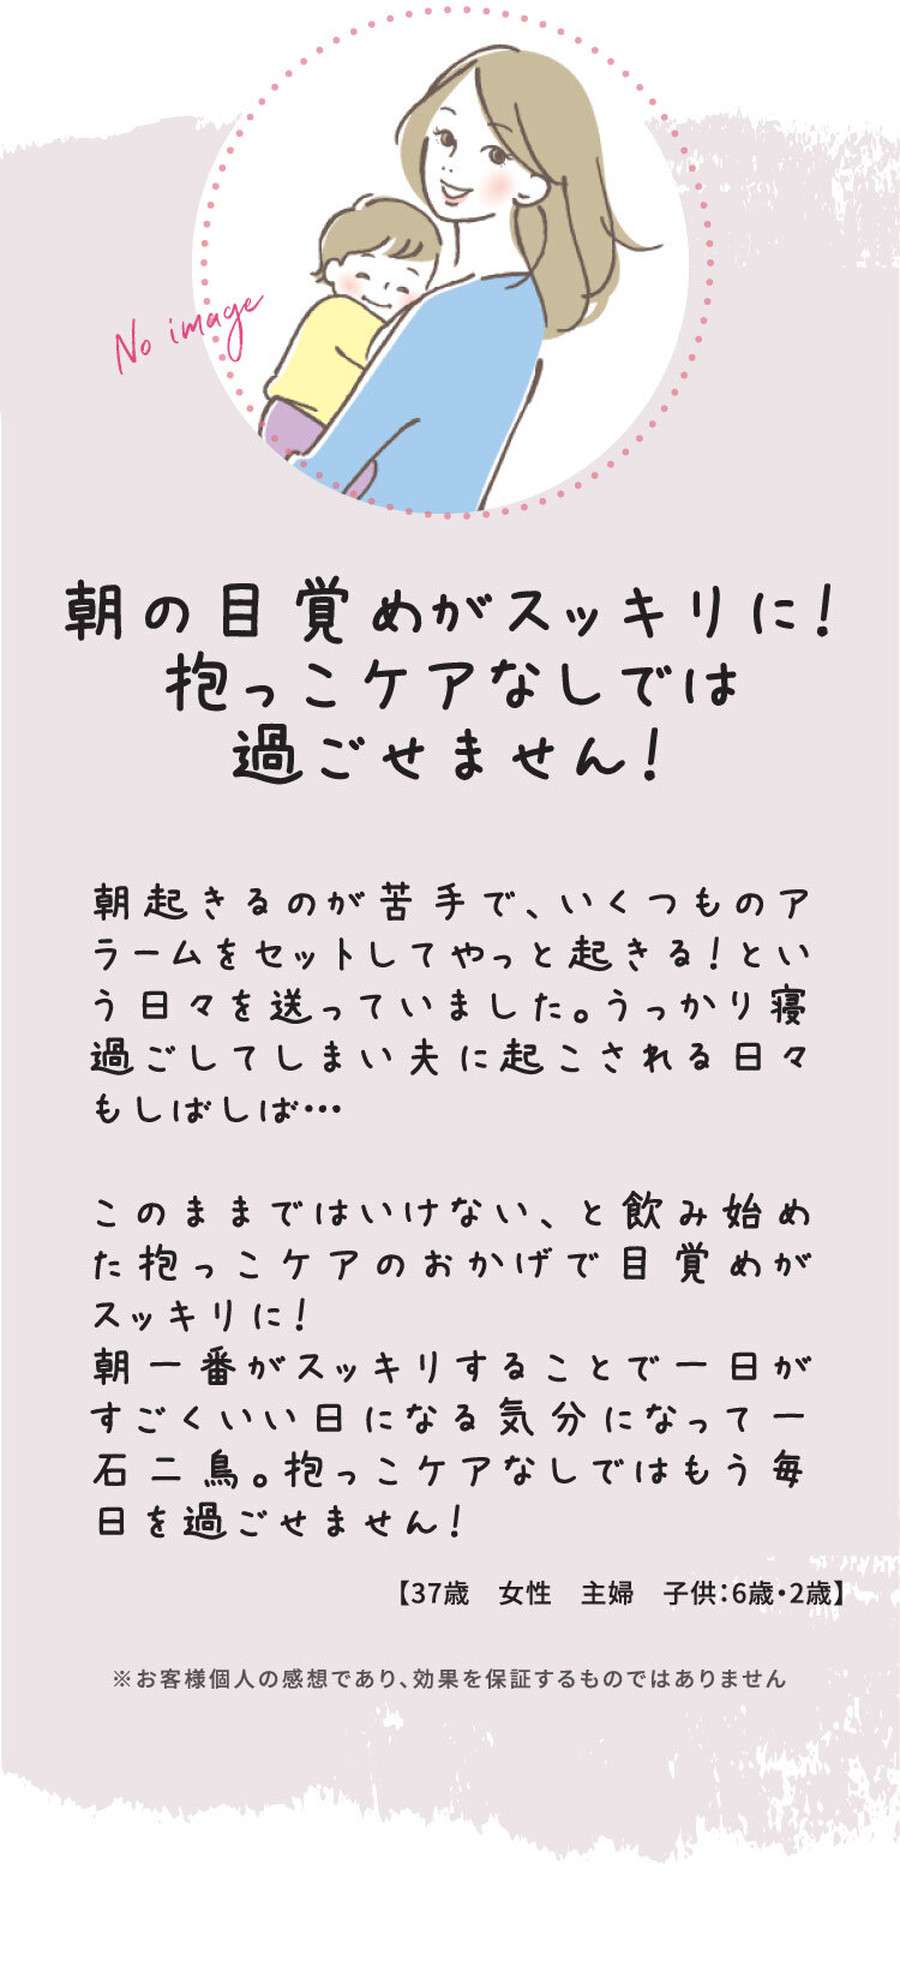 No image
朝の目覚めがスッキリに!
抱っこケアなしでは
過ごせません!
朝起きるのが苦手で、いくつものア
ラームをセットしてやっと起きる!とい
う日々を送っていました。うっかり寝
過ごしてしまい夫に起こされる日々
もしばしば…
このままではいけない、と飲み始め
た抱っこケアのおかげで目覚めが
スッキリに!
朝一番がスッキリすることで一日が
すごくいい日になる気分になって一
石二鳥。抱っこケアなしではもう毎
日を過ごせません!
【37歳　女性　主婦　子供:6歳・2歳】
※お客様個人の感想であり、効果を保証するものではありません